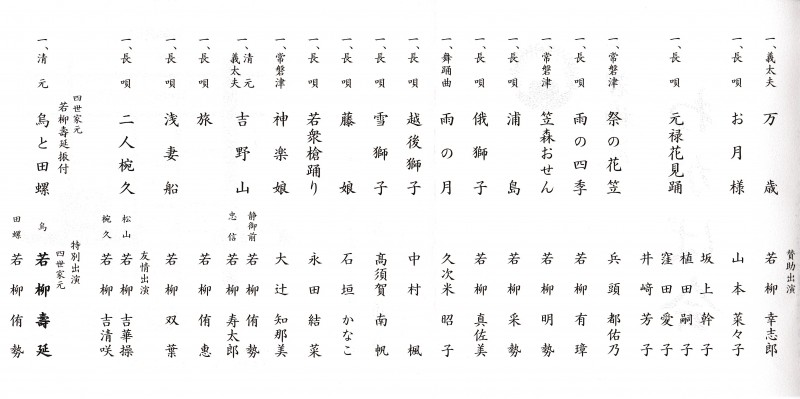 賛助出演
一、義太夫 万歳 若柳幸志郎
一、長唄 お月様 山本菜々子
一、長唄 元禄花見踊 坂上幹子
植田嗣子
窪田愛子
井﨑芳子
一、常磐津 祭の花笠 兵頭都佑乃
一、長唄 雨の四季 若柳有璋
一、常磐津 笠森おせん 若柳明勢
一、長唄 浦島 若柳采勢
一、長唄 俄獅子 若柳真佐美
一、舞踊曲 雨の月 久次米昭子
一、長唄 越後獅子 中村楓
一、長唄 雪獅子 高須賀南帆
一、長唄 藤娘 石垣かなこ
一、長唄 若衆槍踊り 永田結菜
一、常磐津 神楽娘 大辻知那美
一、清元 義太夫 吉野山 静御前 若柳侑勢
忠信 若柳寿太郎
一、長唄 旅 若柳侑恵
一、長唄 浅妻船 若柳双葉
友情出演
一、長唄 二人椀久 松山 若柳吉華操
椀久 若柳吉清咲
特別出演
四世家元
若柳壽延振付
一、清元 烏と田螺 四世家元
烏 若柳壽延
田螺 若柳侑勢